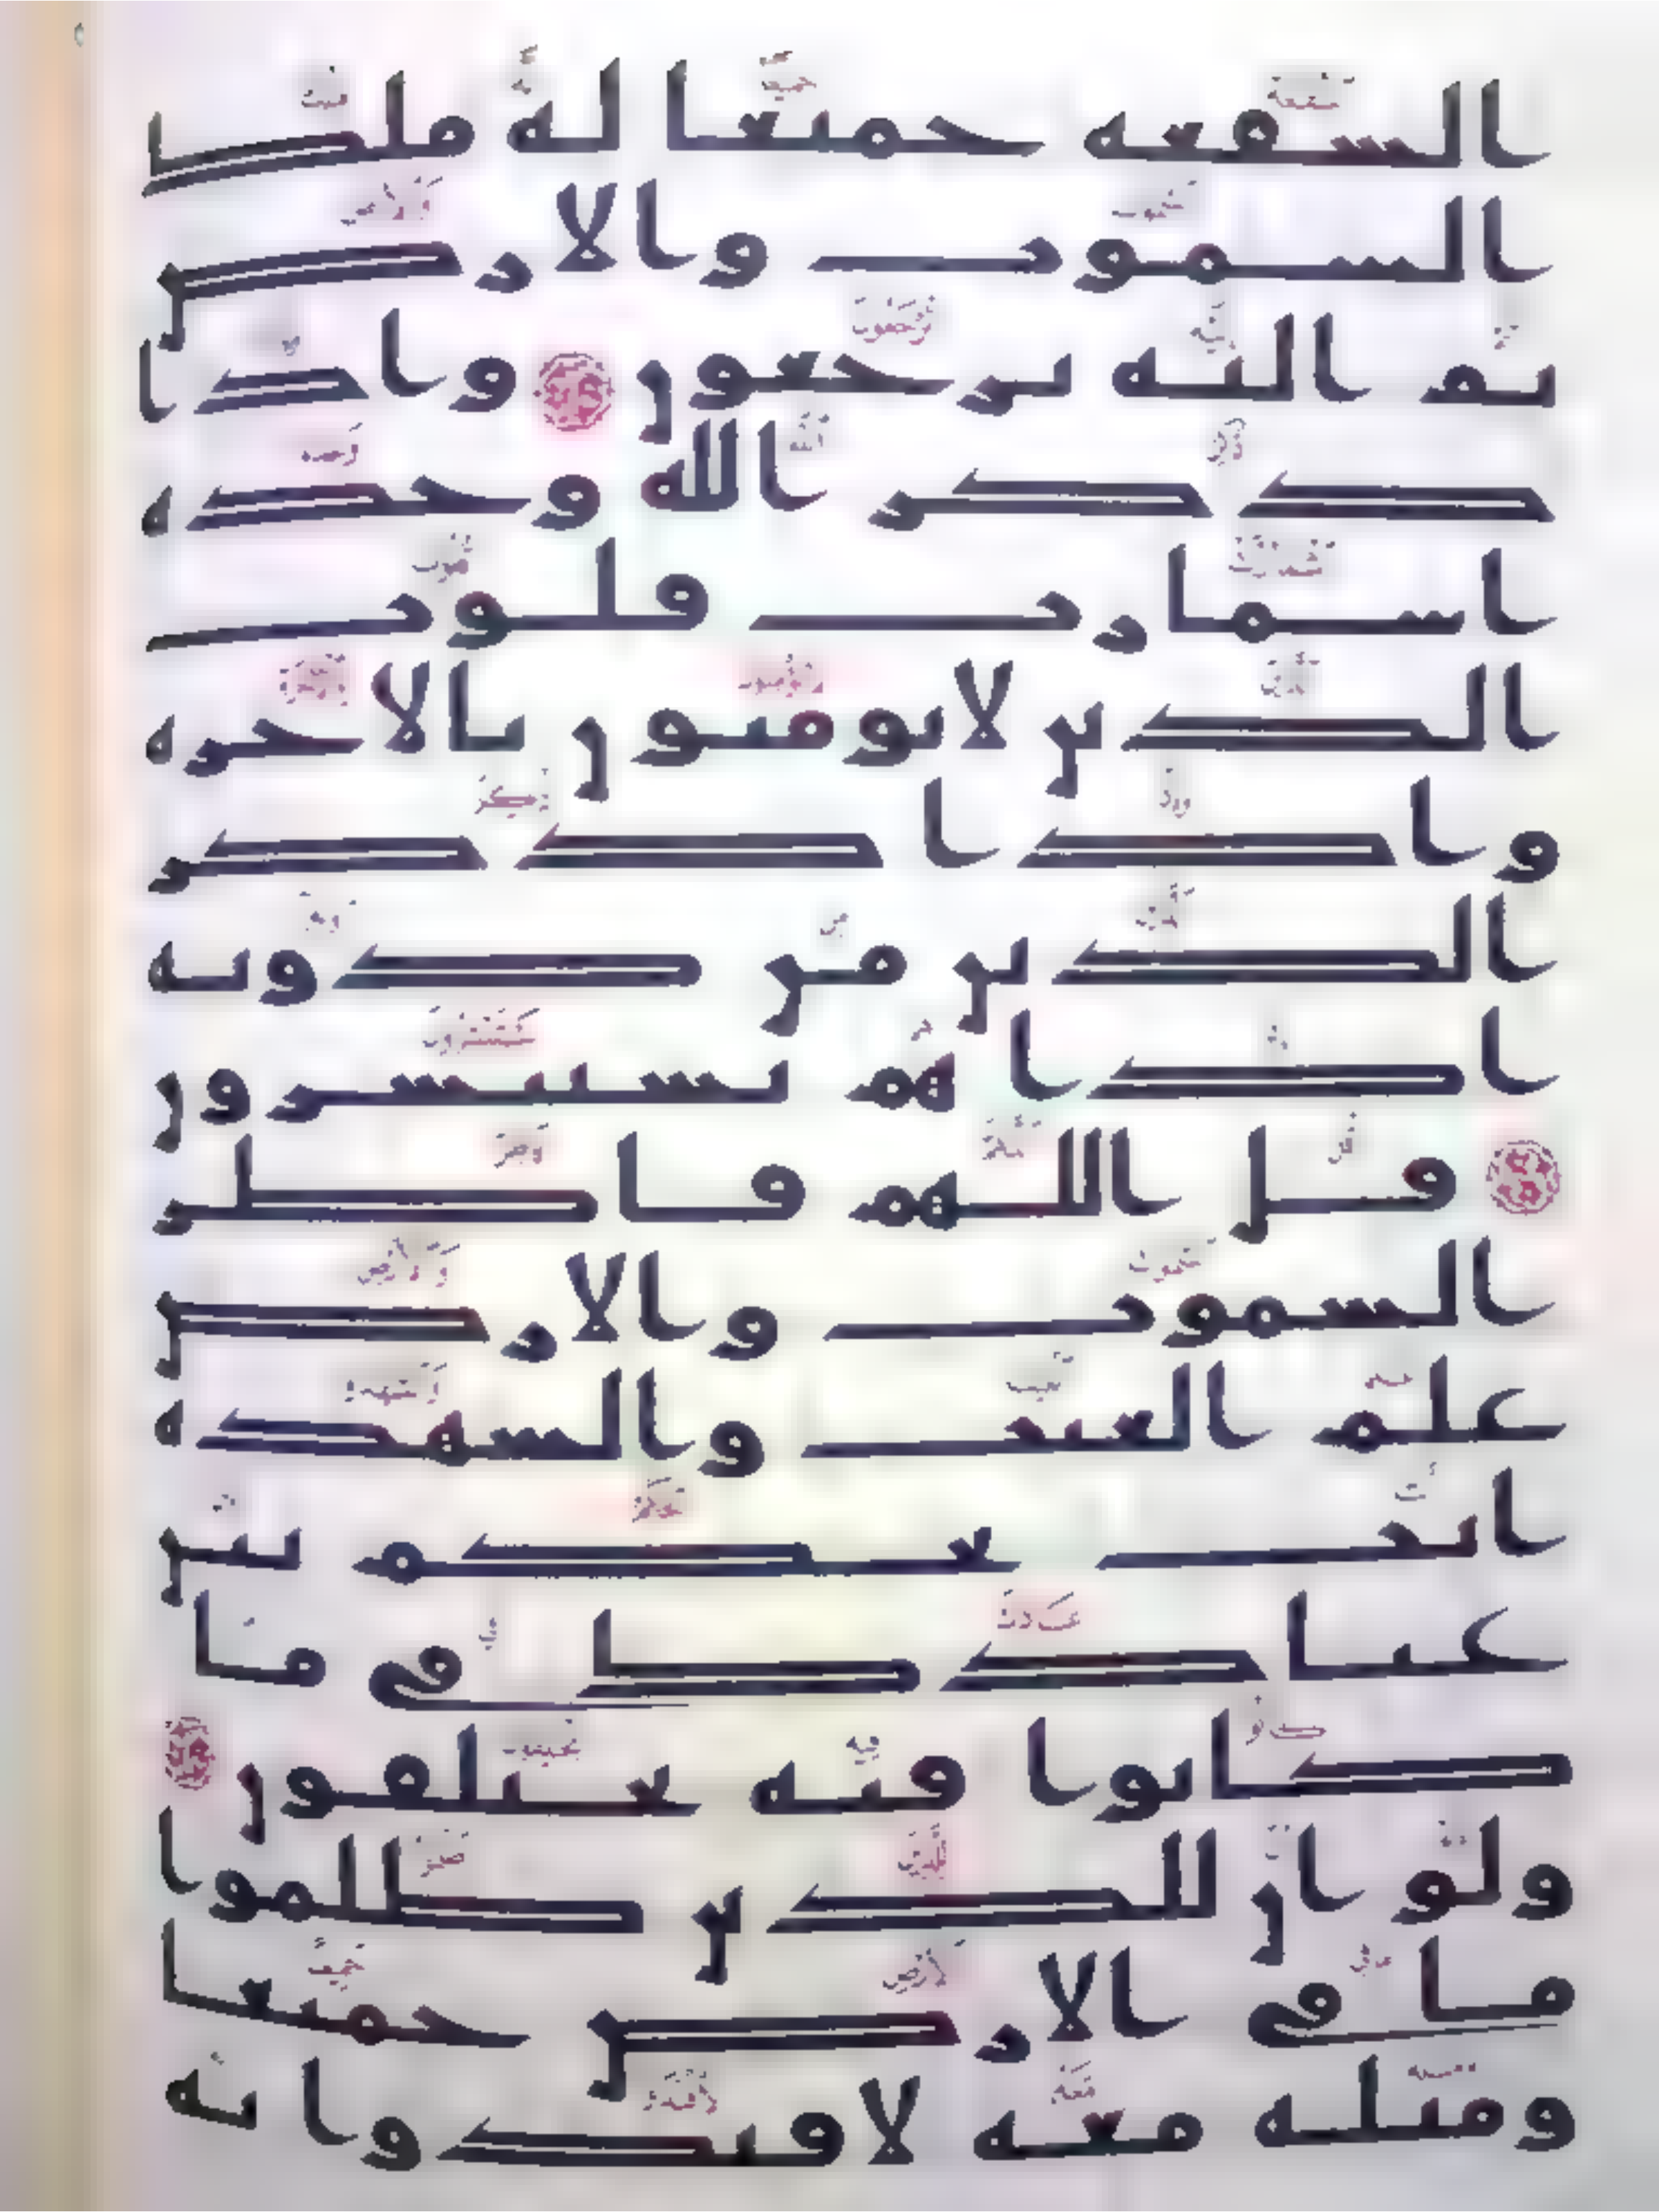 الشفعة جميعا له ملك
السموت والارض
ثم اليه ترجعون واذا
ذكر الله وحده
اشمازت قلوب
الذين لا يومنون بالاخرة
واذا ذكر
الذين من دونه
اذا هم يستبشرون
قل اللهم فاطر
السموت والارض
علم الغيب والشهدة
انت تحكم بين
عبادك في ما
كانوا فيه يختلفون
ولو ان للذين ظلموا
ما في الارض جميعا
ومثله معه لافتدوا به